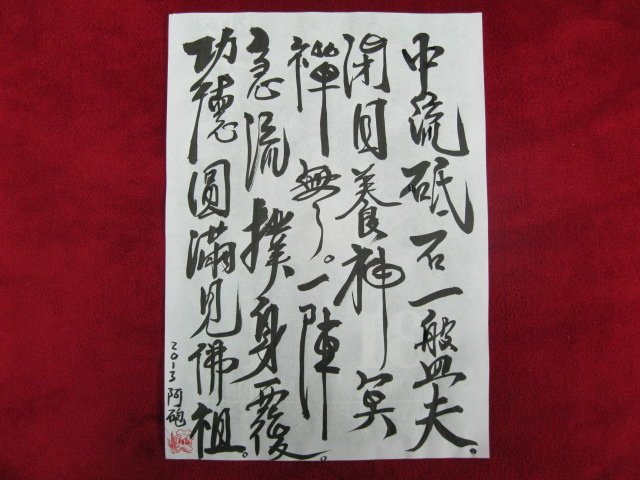 中流砥石一盤夫。
閉目養神冥
禪無了。一陣
急流撲身覆。
功德圓滿見佛祖。
2013阿砲